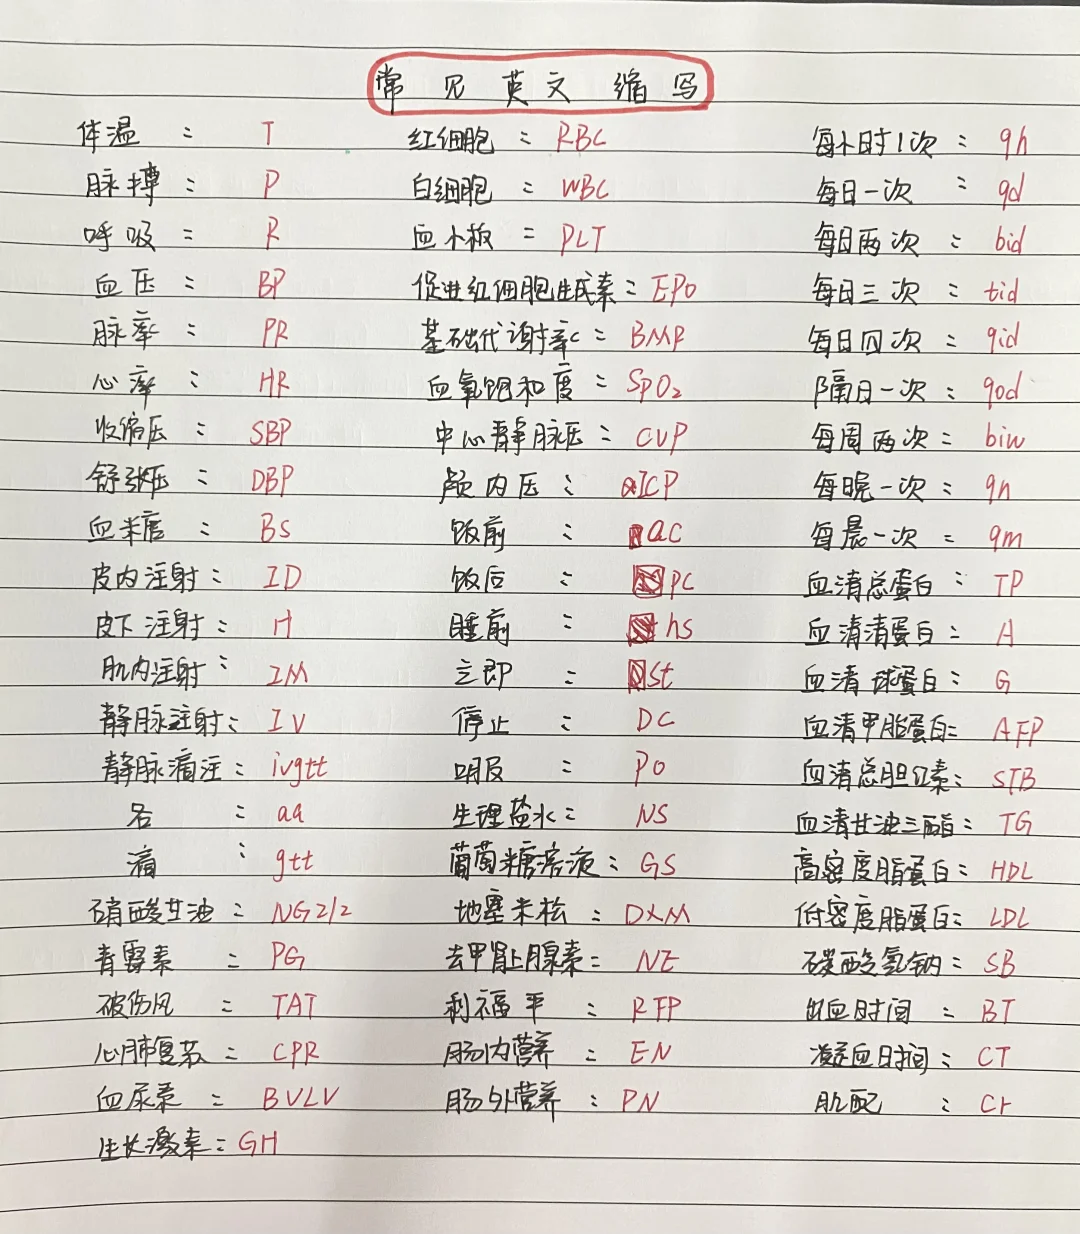 常见英文缩写
体温：T
脉搏：P
呼吸：R
血压：BP
脉率：PR
心率：HR
收缩压：SBP
舒张压：DBP
血糖：BS
皮内注射：ID
皮下注射：H
肌内注射：IM
静脉注射：IV
静脉滴注：ivgtt
各：aa
滴：gtt
硝酸甘油：NG2/2
青霉素：PG
破伤风：TAT
心肺复苏：CPR
血尿素：BVLV
生长激素：GH
红细胞：RBC
白细胞：WBC
血小板：PLT
促进红细胞生成素：EPO
基础代谢率：BMR
血氧饱和度：SPO₂
中心静脉压：CVP
颅内压：ICP
饭前：ac
饭后：pc
睡前：hs
立即：st
停止：DC
口服：PO
生理盐水：NS
葡萄糖溶液：GS
地塞米松：DXM
去甲肾上腺素：NE
利福平：RFP
肠内营养：EN
肠外营养：PN
每小时1次：qh
每日一次：qd
每日两次：bid
每日三次：tid
每日四次：qid
隔日一次：qod
每周两次：biw
每晚一次：qn
每晨一次：qm
血清总蛋白：TP
血清清蛋白：A
血清球蛋白：G
血清甲脂蛋白：AFP
血清总胆红素：STB
血清甘油三酯：TG
高密度脂蛋白：HDL
低密度脂蛋白：LDL
碳酸氢钠：SB
出血时间：BT
凝血时间：CT
肌酐：Cr